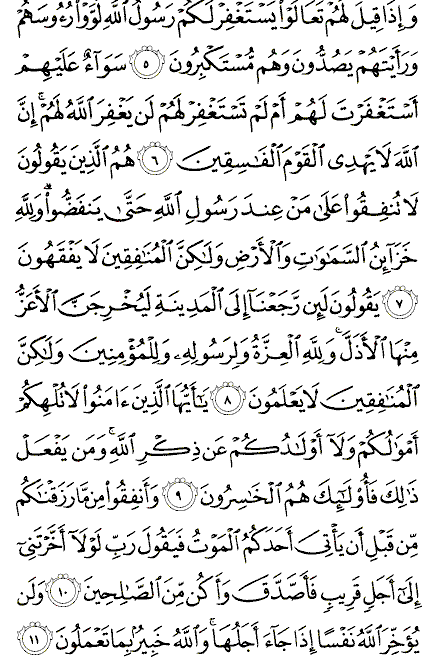 وَإِذَا قِيلَ لَهُمْ تَعَالَوْا۟ يَسْتَغْفِرْ لَكُمْ رَسُولُ ٱللَّهِ لَوَّوْا۟ رُءُوسَهُمْ
وَرَأَيْتَهُمْ يَصُدُّونَ وَهُم مُّسْتَكْبِرُونَ ٥ سَوَآءٌ عَلَيْهِمْ
أَسْتَغْفَرْتَ لَهُمْ أَمْ لَمْ تَسْتَغْفِرْ لَهُمْ لَن يَغْفِرَ ٱللَّهُ لَهُمْ ۚ إِنَّ
ٱللَّهَ لَا يَهْدِى ٱلْقَوْمَ ٱلْفَـٰسِقِينَ ٦ هُمُ ٱلَّذِينَ يَقُولُونَ
لَا تُنفِقُوا۟ عَلَىٰ مَنْ عِندَ رَسُولِ ٱللَّهِ حَتَّىٰ يَنفَضُّوا۟ ۗ وَلِلَّهِ
خَزَآئِنُ ٱلسَّمَـٰوَٰتِ وَٱلْأَرْضِ وَلَـٰكِنَّ ٱلْمُنَـٰفِقِينَ لَا يَفْقَهُونَ
٧ يَقُولُونَ لَئِن رَّجَعْنَآ إِلَى ٱلْمَدِينَةِ لَيُخْرِجَنَّ ٱلْأَعَزُّ
مِنْهَا ٱلْأَذَلَّ ۚ وَلِلَّهِ ٱلْعِزَّةُ وَلِرَسُولِهِۦ وَلِلْمُؤْمِنِينَ وَلَـٰكِنَّ
ٱلْمُنَـٰفِقِينَ لَا يَعْلَمُونَ ٨ يَـٰٓأَيُّهَا ٱلَّذِينَ ءَامَنُوا۟ لَا تُلْهِكُمْ
أَمْوَٰلُكُمْ وَلَآ أَوْلَـٰدُكُمْ عَن ذِكْرِ ٱللَّهِ ۚ وَمَن يَفْعَلْ
ذَٰلِكَ فَأُو۟لَـٰٓئِكَ هُمُ ٱلْخَـٰسِرُونَ ٩ وَأَنفِقُوا۟ مِن مَّا رَزَقْنَـٰكُم
مِّن قَبْلِ أَن يَأْتِىَ أَحَدَكُمُ ٱلْمَوْتُ فَيَقُولَ رَبِّ لَوْلَآ أَخَّرْتَنِىٓ
إِلَىٰٓ أَجَلٍ قَرِيبٍ فَأَصَّدَّقَ وَأَكُن مِّنَ ٱلصَّـٰلِحِينَ ١٠ وَلَن
يُؤَخِّرَ ٱللَّهُ نَفْسًا إِذَا جَآءَ أَجَلُهَا ۚ وَٱللَّهُ خَبِيرٌۢ بِمَا تَعْمَلُونَ ١١